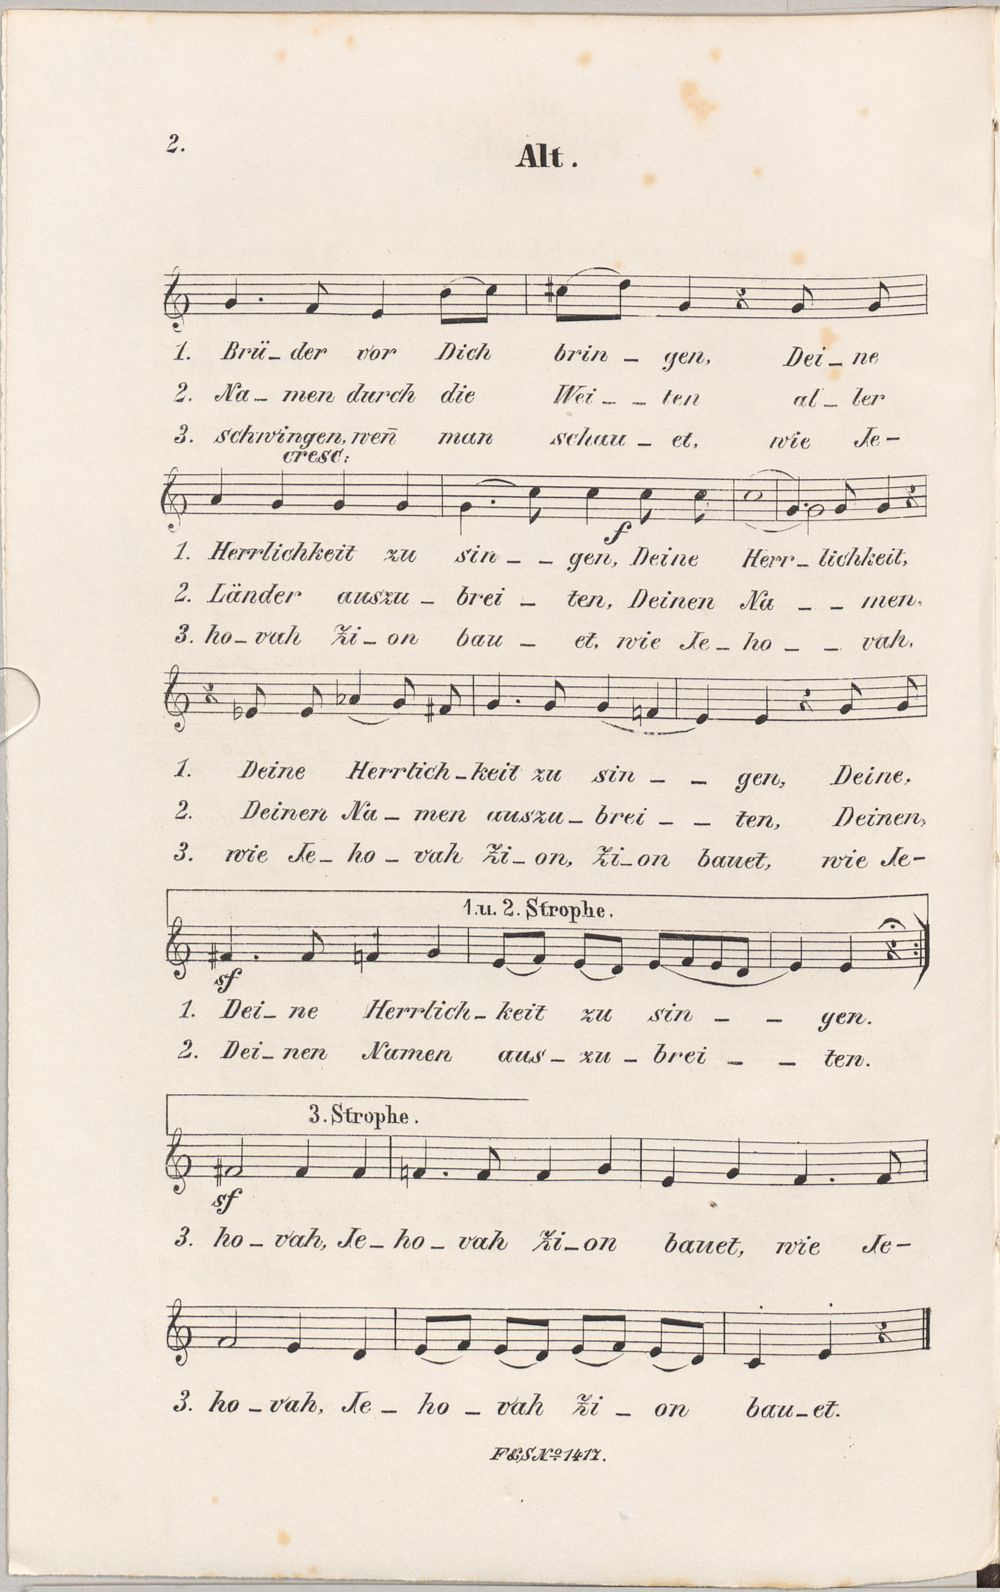 2.
Alt.
1. Brü_ der vor Dich brin _ gen, Dei _ ne
2. Na _ men durch die Wei _ _ ten al _ ler
3. schwingen, wen̄ man schau _ et, wie Je-
cresc:
f
1. Herrlichkeit zu sin _ _ gen, Deine Herr_ lichkeit,
2. Länder auszu _ brei _ ten, Deinen Na _ _ men,
3. ho_ vah Zi_ on bau _ et, wie Je_ ho _ _ vah,
1. Deine Herrlich_keit zu sin _ _ gen, Deine,
2. Deinen Na_ men auszu_ brei _ _ ten, Deinen,
3. wie Je_ ho _ vah Zi_ on, Zi_on bauet, wie Je-
1.u. 2. Strophe.
sf
1. Dei_ ne Herrlich_ keit zu sin _ _ gen.
2. Dei_ nen Namen aus_ zu _ brei _ _ ten.
3. Strophe.
sf
3. ho _ vah, Je_ ho _ vah Zi_on bauet, wie Je-
3. ho _ vah, Je _ ho _ vah Zi _ on bau_et.
F&S No 1417.